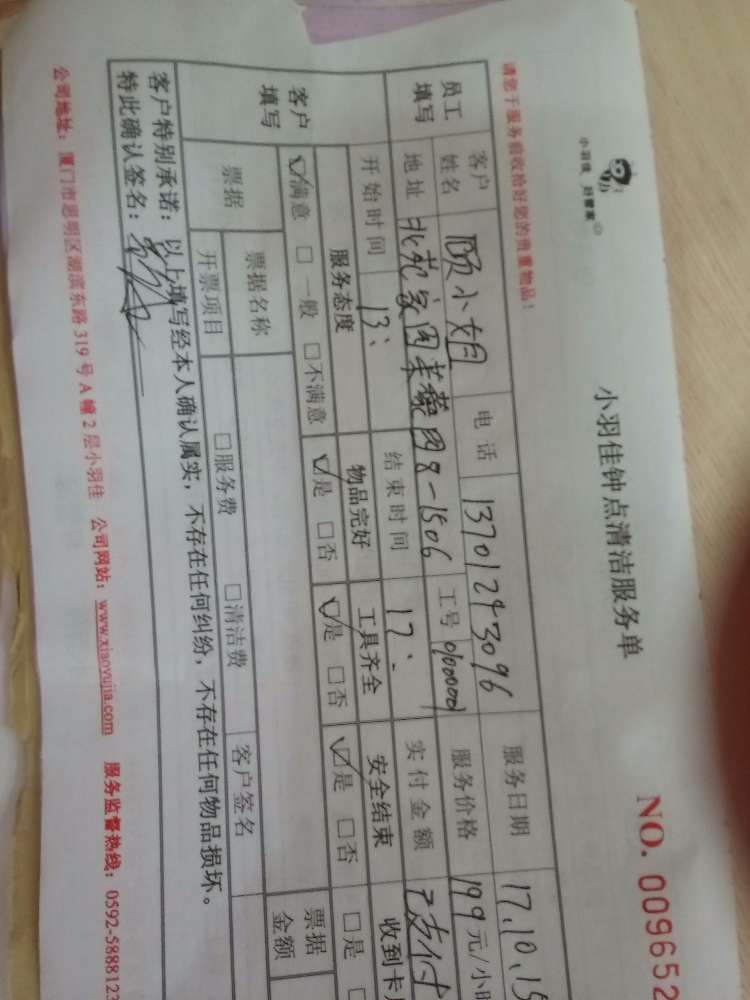 小羽佳 好管家
小羽佳钟点清洁服务单
NO. 009652
请您于服务前收拾好您的贵重物品！
员工填写
客户姓名 顾小姐 电话 13701243096 服务日期 17.10.15
地址 北苑家园茉藜园8-1506 工号 0100001 服务价格 199元/小时
开始时间 13: 结束时间 17: 实付金额 已支付
客户填写
服务态度 物品完好 工具齐全 安全结束 收到卡
☑满意 □一般 □不满意 ☑是 □否 ☑是 □否 ☑是 □否 □是
票据 票据名称 客户签名 票据金额
开票项目 □服务费 □清洁费
客户特别承诺：以上填写经本人确认属实，不存在任何纠纷，不存在任何物品损坏。
特此确认签名：
公司地址：厦门市思明区湖滨东路319号A幢2层小羽佳 公司网站：www.xiaoyujia.com 服务监督热线：0592-5888123